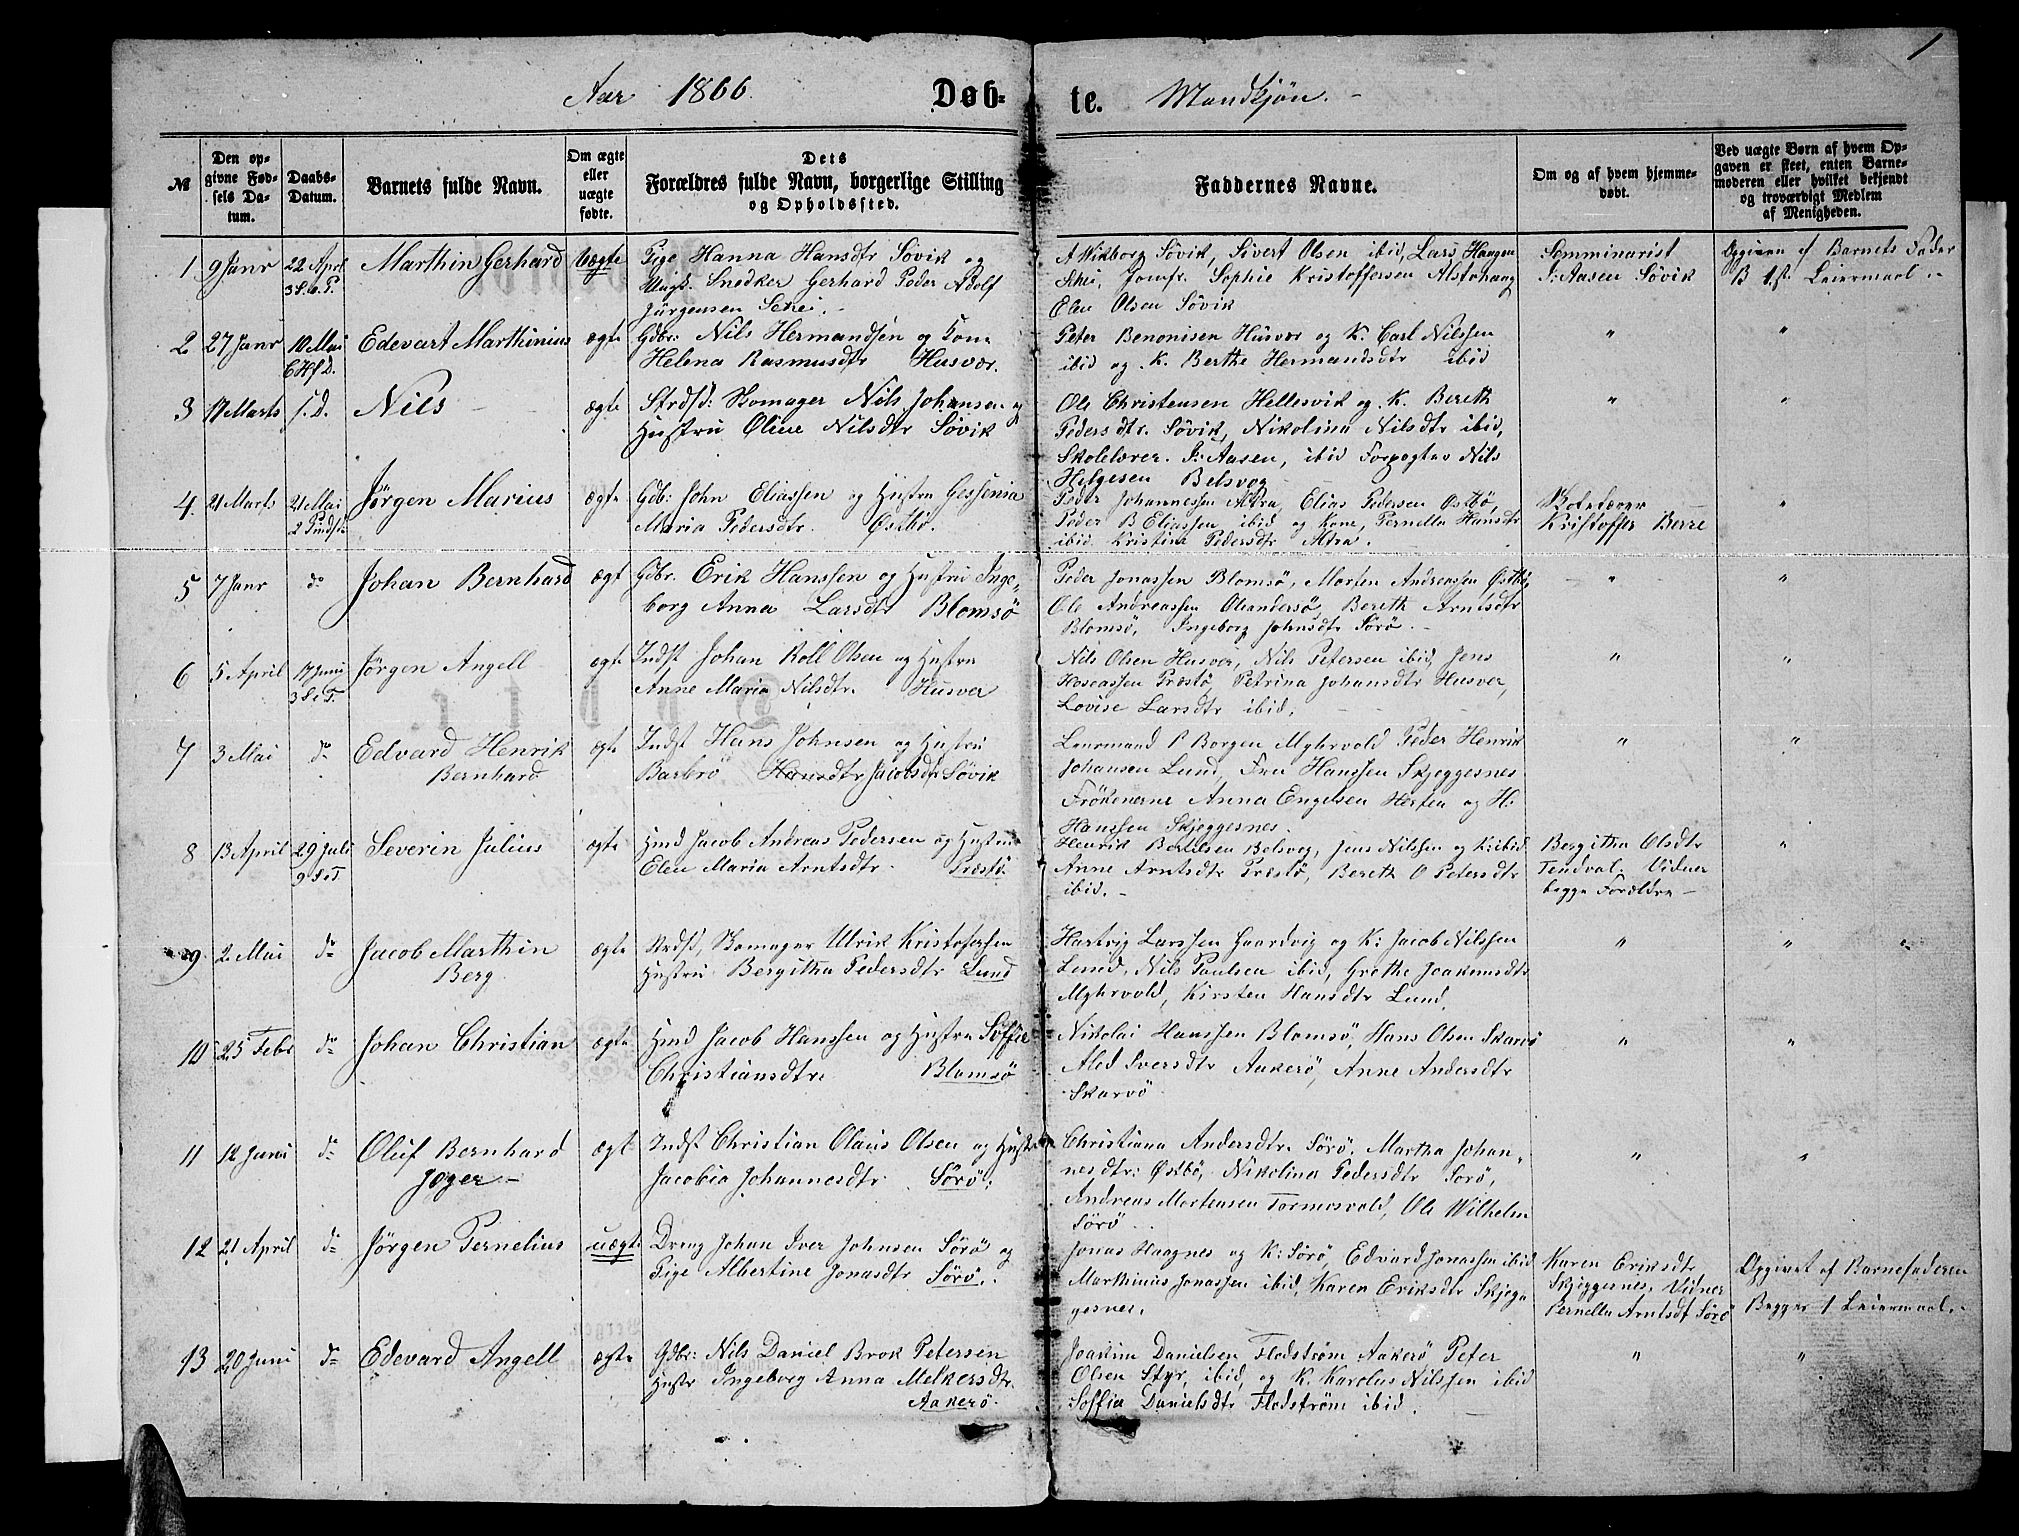 1
Aar 1866. Døb- te. Mandkjøn. -
№
Den op-
givne Fød-
sels Da-
tum.
Daabs-
Datum.
Barnets fulde Navn.
Om ægte
eller
uægte
fødte.
Dets
Forældres fulde Navn, borgerlige Stilling
og Opholdssted.
Faddernes Navne.
Om og af hvem hjemme-
døbt.
Ved uægte Børn af hvem Op-
gaven er skeet, enten Barne-
moderen eller hvilket bekjendt
og troværdigt Medlem
af Menigheden.
1 9 Janr 22 April Marthin Gerhard Uægte Pige Hanna Hansdtr Søvik og
3 S. e. P. Ungk. Snedker Gerhard Peder Adolf
Jürgensen
A Wikborg Søvik, Sivert Olsen ibid, Lars Haagen
Jomfr. Sophie Kristoffersen Alstahaug
Elen Olsen Søvik
Semminarist
P. Aasen Søvik
Opgiven af Barnets Fader
B 1ste Leiermaal
2 27 Janr 10 Mai Edevart Marthinius ægte Gdbr: Nils Hermandsen og Kone
6 Helena Rasmusdtr Husvær.
Peter Benonisen Husvær og K. Carl Nilssen
ibid og K. Berthe Hermandsdtr ibid
" "
3 17 Marts s. d. Nils - ægte Strdsd: Skomager Nils Johansen og
Hustru Oline Nilsdtr Søvik
Ole Christensen Hellesvik og K. Bereth
Pedersdtr. Søvik, Nikolina Nilsdtr ibid,
Skolelærer P. Aasen, ibid Forpagter Nils
Helgesen Belsvog
" "
4 21 Marts 21 Mai Jørgen Marius ægte Gdb: John Eliassen og Hustru Gessenia
2 Pindse Maria Pedersdtr. Østbø.
Peder Johannessen Altra, Elias Pedersen Østbø,
Peder B Eliassen ibid og Kone, Pernella Hansdtr
ibid Kristine Pedersdtr Altra.
Skolelærer
Kristoffer Berre
"
5 7 Janr do Johan Bernhard ægt Gdbr. Erik Hanssen og Hustru Inge-
borg Anna Larsdtr Blomsø
Peder Jonassen Blomsø, Morten Andreassen Østbø,
Ole Andreassen Oleandersø, Bereth Arntsdtr
Blomsø, Ingeborg Johnsdtr Sørø. -
" "
6 5 April 17 Juni Jørgen Angell ægte Indst Johan Roll Olsen og Hustru
3 S. e. T. Anne Maria Nilsdtr. Husver
Nils Olsen Husver, Nils Petersen ibid, Jens
Hoseassen Præstø, Petrina Johansdtr Husver,
Lovise Larsdtr ibid.
" "
7 3 Mai do Edvard Henrik ægte Indst Hans Johnsen og Hustru
Bernhard Barbrø Hansdtr Jacobsdtr Søvik
Leiermand P Borgen Myhrvold Peder Henrik
Johansen Lund, Fru Hanssen Skjeggesnes
Frøknerne Anna Engelsen og H.
Hanssen Skjeggesnes.
" "
8 13 April 29 Juli Severin Julius ægte Hmd Jacob Andreas Pedersen og Hustru
9 S e T Elen Maria Arntsdtr. Præstø.
Henrik Bertelsen Belsvog, Jens Nilssen og K: ibid
Anne Arntsdtr Præstø, Bereth O Petersdtr
ibid. -
Bergitha Olsdtr
Tendval. Vidner
begge Forældre -
"
9 2 Mai do Jacob Marthin ægte Strdsd, Skomager Ulrik Kristofersen
Berg Hustru Bergitha Pedersdtr Lund
Hartvig Larssen Haardvig og K: Jacob Nilssen
Lund, Nils Paulsen ibid, Grethe Joakimsdtr
Myhrvold, Kirsten Hansdtr Lund.
" " "
10 25 Febr do Johan Christian ægte Hmd Jacob Hanssen og Hustru Soffie
Christiansdtr. Blomsø
Nikolai Hanssen Blomsø, Hans Olsen Skarvø
Aled Iversdtr Aakerø, Anne Andersdtr
Skarvø
" "
11 12 Juni do Oluf Bernhard ægt Indst Christian Olaus Olsen og Hustru
Jøger - Jacobia Johannesdtr. Sørø.
Christiana Andersdtr. Sørø, Martha Johan-
nesdtr: Østbø, Nikolina Pedersdtr Sørø,
Andreas Mortensen Tormosvold, Ole Wilhelm
Sørø
" "
12 21 April do Jørgen Pernelius uægte Dreng Johan Iver Johnsen Sørø og
Pige Albertine Jonasdtr Sørø.
Jonas Haagnes og K: Sørø, Edvard Jonassen ibid
Marthinus Jonassen ibid, Karen Eriksdtr Skjeg-
gesnes.
Karen Eriksdtr
Skjeggernes, Vidner
Pernella Arntsdt Sørø
Opgivet af Barnefaderen
Begges 1 Leiermaal.
13 20 Juni do Edevard Angell ægte Gdbr: Nils Daniel Brok Petersen
Hustr Ingeborg Anna Melkersdtr.
Aakerø.
Joakim Danielsen Flodstrøm Aakerø Peter
Olsen Styr, ibid, og K. Karolus Nilssen ibid
Soffia Danielsdtr Flodstrøm ibid.
" "